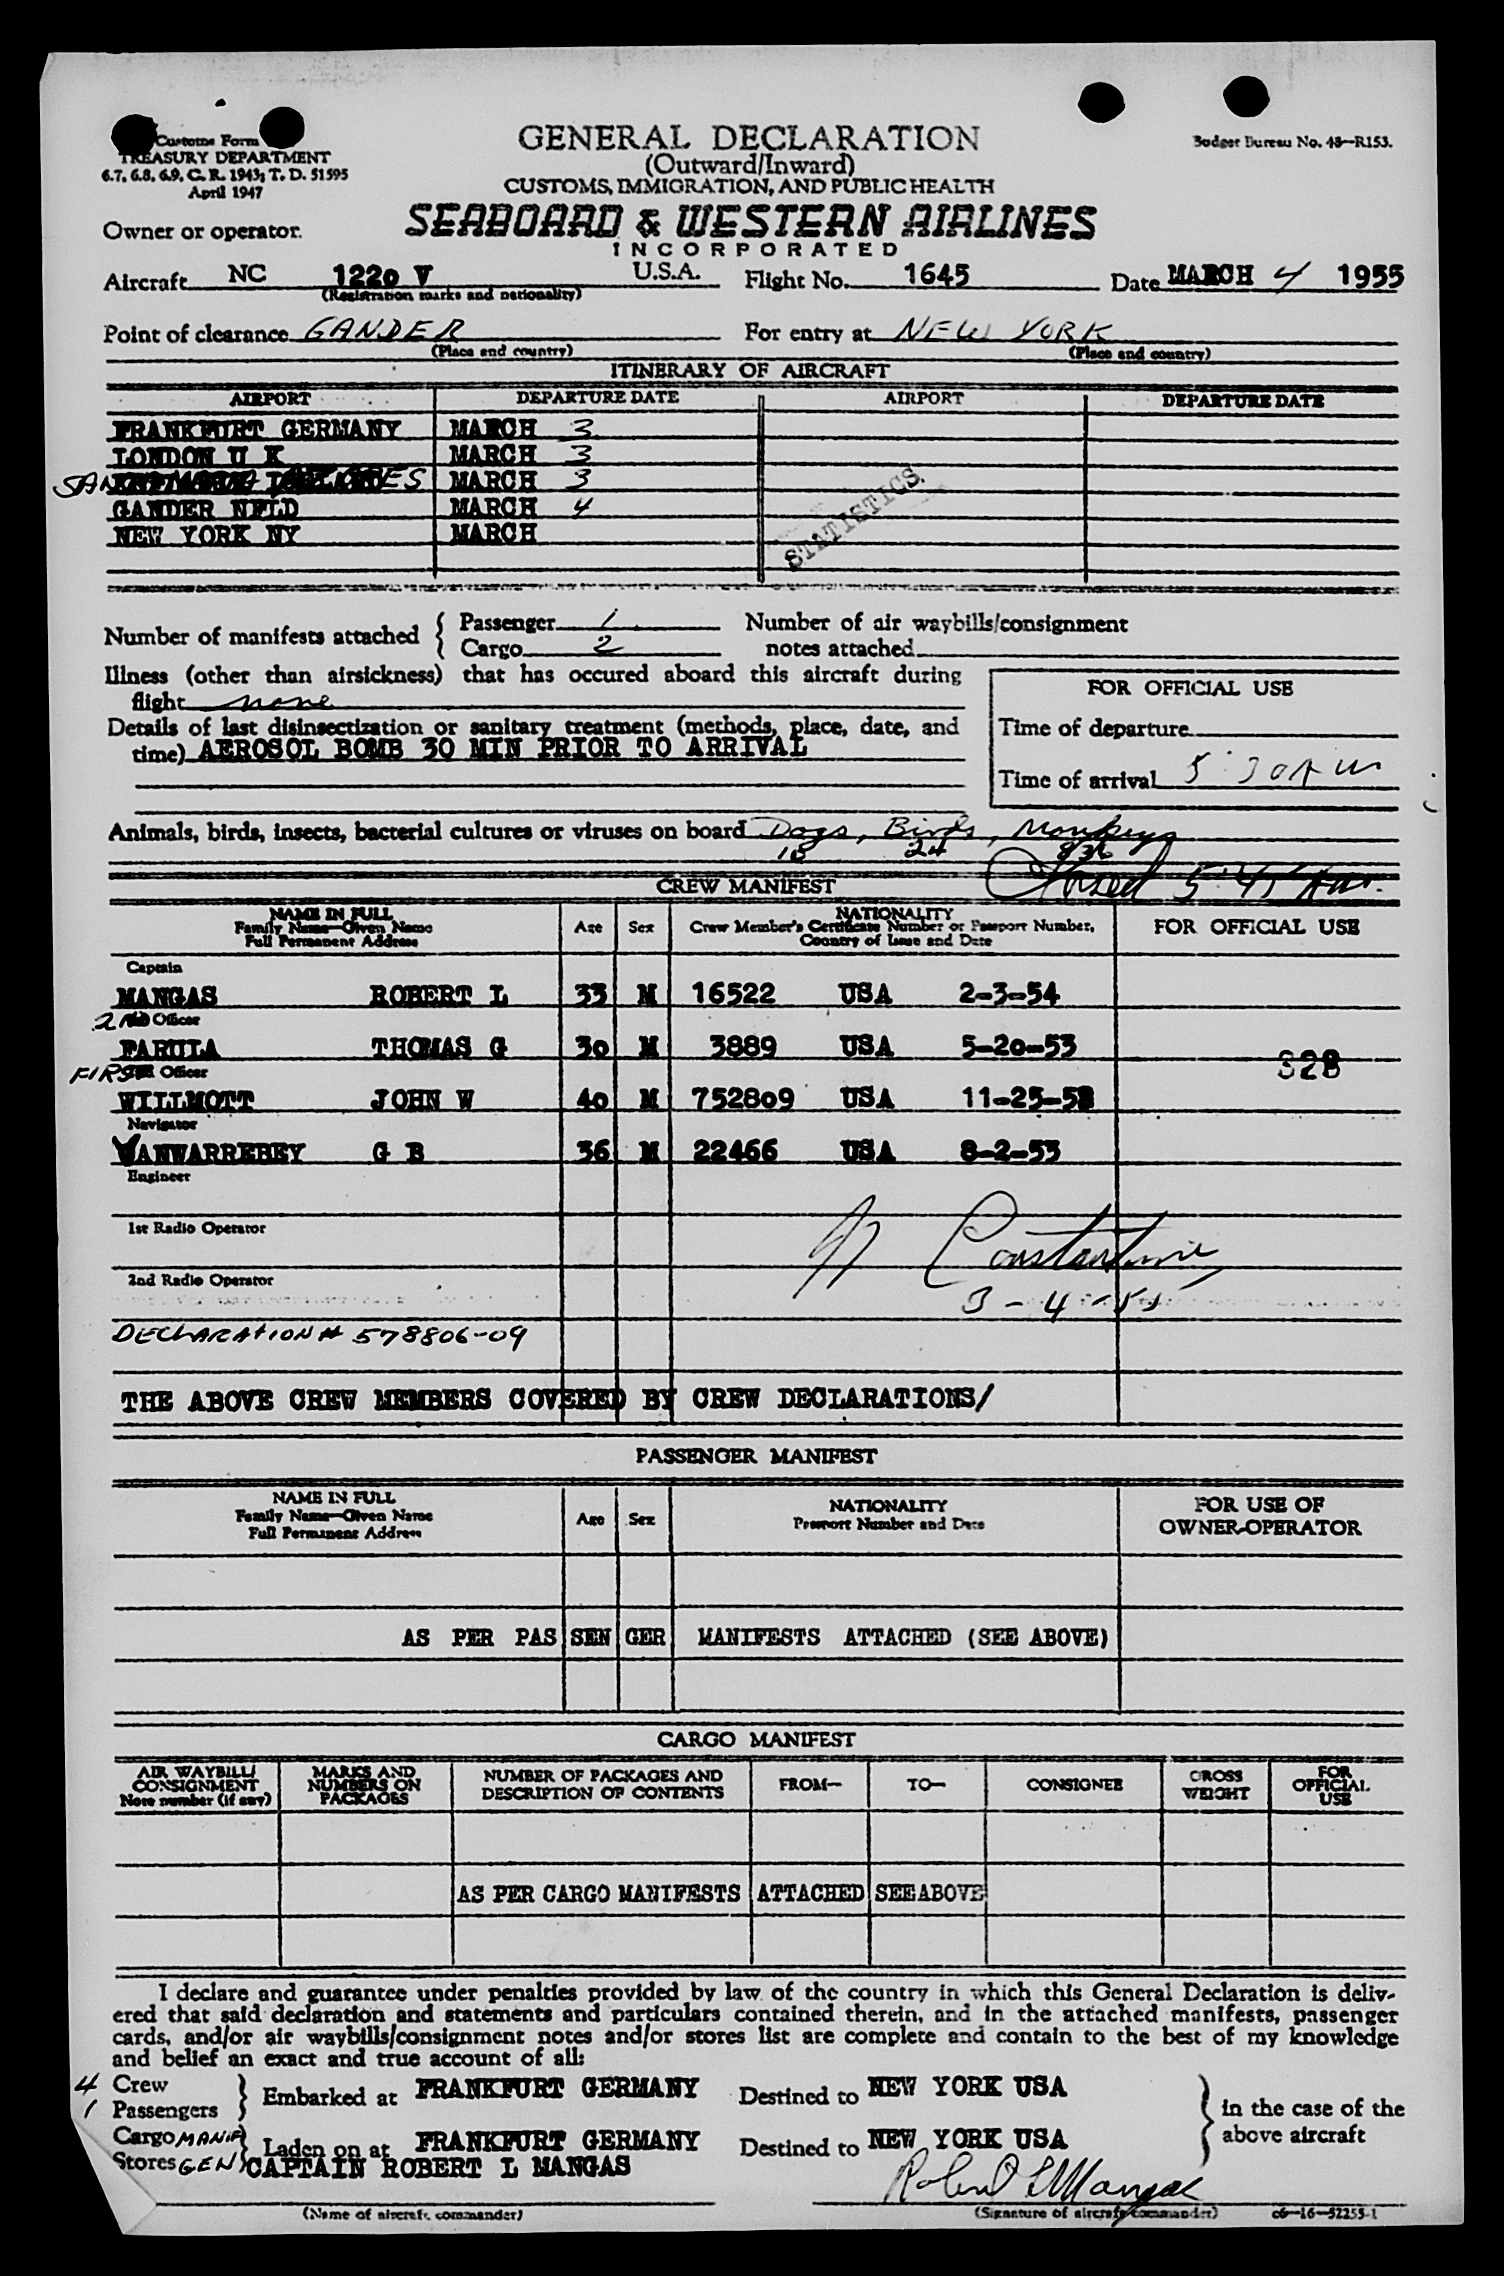 Customs Form
TREASURY DEPARTMENT
6.7, 6.8, 6.9, C. R. 1943; T. D. 51595
April 1947
GENERAL DECLARATION
(Outward/Inward)
CUSTOMS, IMMIGRATION, AND PUBLIC HEALTH
Budget Bureau No. 48—R153.
Owner or operator.
SEABOARD & WESTERN AIRLINES
INCORPORATED
Aircraft NC 1220 V U.S.A. Flight No. 1645 Date MARCH 4 1955
(Registration marks and nationality)
Point of clearance GANDER For entry at NEW YORK
(Place and country) (Place and country)
ITINERARY OF AIRCRAFT
AIRPORT DEPARTURE DATE AIRPORT DEPARTURE DATE
FRANKFURT GERMANY MARCH 3
LONDON U K MARCH 3
SANTA MARIA AZORES MARCH 3
GANDER NFLD MARCH 4
NEW YORK NY MARCH
STATISTICS
Number of manifests attached { Passenger 1
Cargo 2
Number of air waybills/consignment
notes attached
Illness (other than airsickness) that has occured aboard this aircraft during
flight none
Details of last disinsectization or sanitary treatment (methods, place, date, and
time) AEROSOL BOMB 30 MIN PRIOR TO ARRIVAL
FOR OFFICIAL USE
Time of departure
Time of arrival 5:30 AM
Animals, birds, insects, bacterial cultures or viruses on board Dogs, Birds, Monkeys
24 836
5:45 Am.
CREW MANIFEST
NAME IN FULL
Family Name—Given Name
Full Permanent Address
Age Sex
NATIONALITY
Crew Member's Certificate Number or Passport Number,
Country of Issue and Date
FOR OFFICIAL USE
Captain
MANGAS ROBERT L 33 M 16522 USA 2-3-54
2ND Officer
PARULA THOMAS G 30 M 3889 USA 5-20-53
328
FIRST Officer
WILLMOTT JOHN W 40 M 752809 USA 11-25-53
Navigator
VANWARREBEY G B 36 M 22466 USA 8-2-53
Engineer
1st Radio Operator
Constantine
2nd Radio Operator
3-4-55
DECLARATION # 578806-09
THE ABOVE CREW MEMBERS COVERED BY CREW DECLARATIONS/
PASSENGER MANIFEST
NAME IN FULL
Family Name—Given Name
Full Permanent Address
Age Sex
NATIONALITY
Passport Number and Date
FOR USE OF
OWNER-OPERATOR
AS PER PAS SEN GER MANIFESTS ATTACHED (SEE ABOVE)
CARGO MANIFEST
AIR WAYBILL/
CONSIGNMENT
Note number (if any)
MARKS AND
NUMBERS ON
PACKAGES
NUMBER OF PACKAGES AND
DESCRIPTION OF CONTENTS
FROM—
TO—
CONSIGNEE
GROSS
WEIGHT
FOR
OFFICIAL
USE
AS PER CARGO MANIFESTS ATTACHED SEE ABOVE
I declare and guarantee under penalties provided by law of the country in which this General Declaration is deliv-
ered that said declaration and statements and particulars contained therein, and in the attached manifests, passenger
cards, and/or air waybills/consignment notes and/or stores list are complete and contain to the best of my knowledge
and belief an exact and true account of all:
4 Crew
1 Passengers } Embarked at FRANKFURT GERMANY Destined to NEW YORK USA
Cargo MANIF
Stores GEN } Laden on at FRANKFURT GERMANY Destined to NEW YORK USA
} in the case of the
above aircraft
CAPTAIN ROBERT L MANGAS
Robert L Mangas
(Name of aircraft commander) (Signature of aircraft commander) c6—16—52255-1